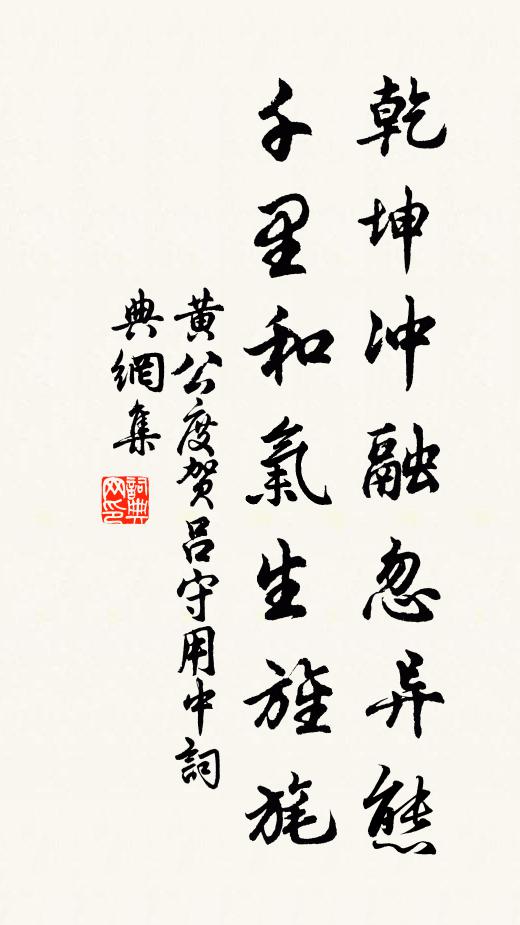 乾坤冲融忽异態
千里和氣生旌旄
黄公度贺吕守用中詞
典網集
詞典网印